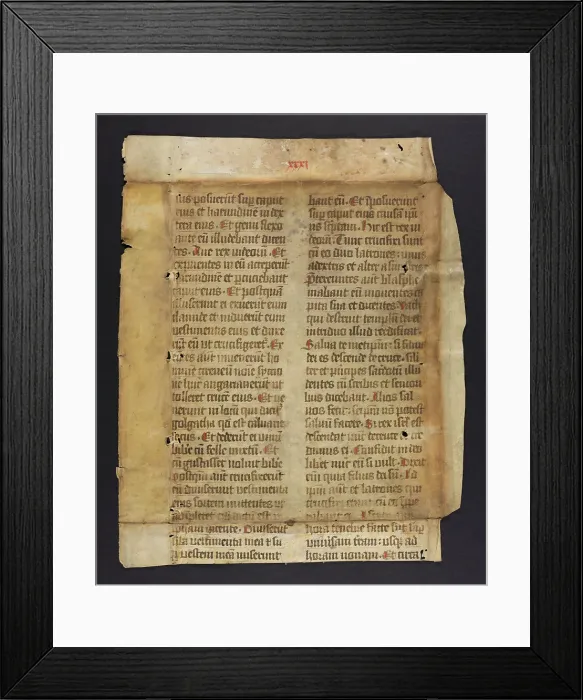 xxxi
sus posuerūt sup caput
eius et harundinē in dex
tera eius. Et genu flexo
ante eū illudebant dicen
tes. Aue rex iudeorū. Et
expuentes in eū acceperūt
harundinē et percuciebant
caput eius. Et postquā
illuserunt ei exuerūt eum
clamide et induerūt eum
vestimentis eius et duxe
rūt eū ut crucifigeret. Ex
euntes aut inuenerūt ho
minē cireneū noīe symo
nē hūc angariauerūt ut
tolleret crucē eius. Et ue
nerunt in locū qui dicit
golgatha qd est caluarie
locus. Et dederūt ei vinū
bibe cū felle mixtū. Et
cū gustasset noluit bibe
postqm aut crucifixerūt
eū diuiserunt vestimenta
eius sortem mittentes ut
adimpleret
pham dicente. Diuiserūt
sibi vestimenta mea et su
per vestem meā miserunt
bant eū. Et īposuerunt
sup caput eius causā ipi
us scptam. Hic est rex iu
deorū. Tunc crucifixi sunt
cū eo duo latrones: unus
a dextris et alter a sinistris
Ptereuntes aut blasphe
mabant eū mouentes ca
pita sua et dicentes. Vath
qui destruit templū dei et
in triduo illud reedificat.
Salua temetipm: si filius
dei es descende de cruce. Sili
ter et pricipes sacdotū illu
dentes cū scribis et seniori
bus dicebant. Alios sal
uos fecit: seipsm nō potest
saluū facere. Si rex isrl est
descendat nūc de cruce et cre
dimus ei. Confidit in deo
liberet nūc eū si vult. Dixit
enī quia filius dei sū. Id
ipm aūt et latrones qui
crucifixi erant cū eo impe
rabant ei. A sexta aut
hora tenebre facte sūt sup
uniūsam terrā: usqz ad
horam nonam. Et circa